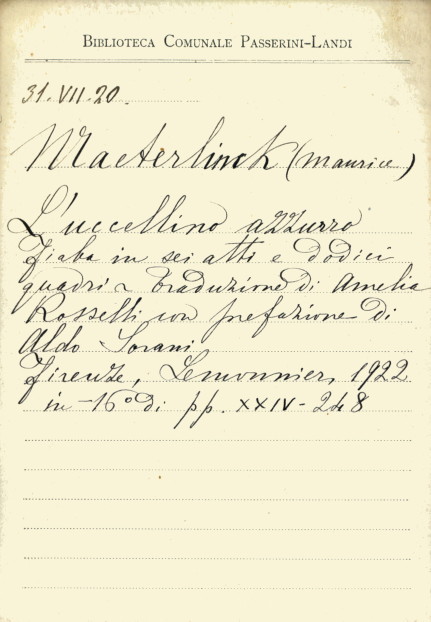 BIBLIOTECA COMUNALE PASSERINI-LANDI
31.VII.20.
Maeterlinck (Maurice)
L'uccellino azzurro
Fiaba in sei atti e dodici
quadri - Traduzione di Amelia
Rosselli con prefazione di
Aldo Sorani
Firenze, Lemonnier, 1922
in-16° di pp. XXIV-248